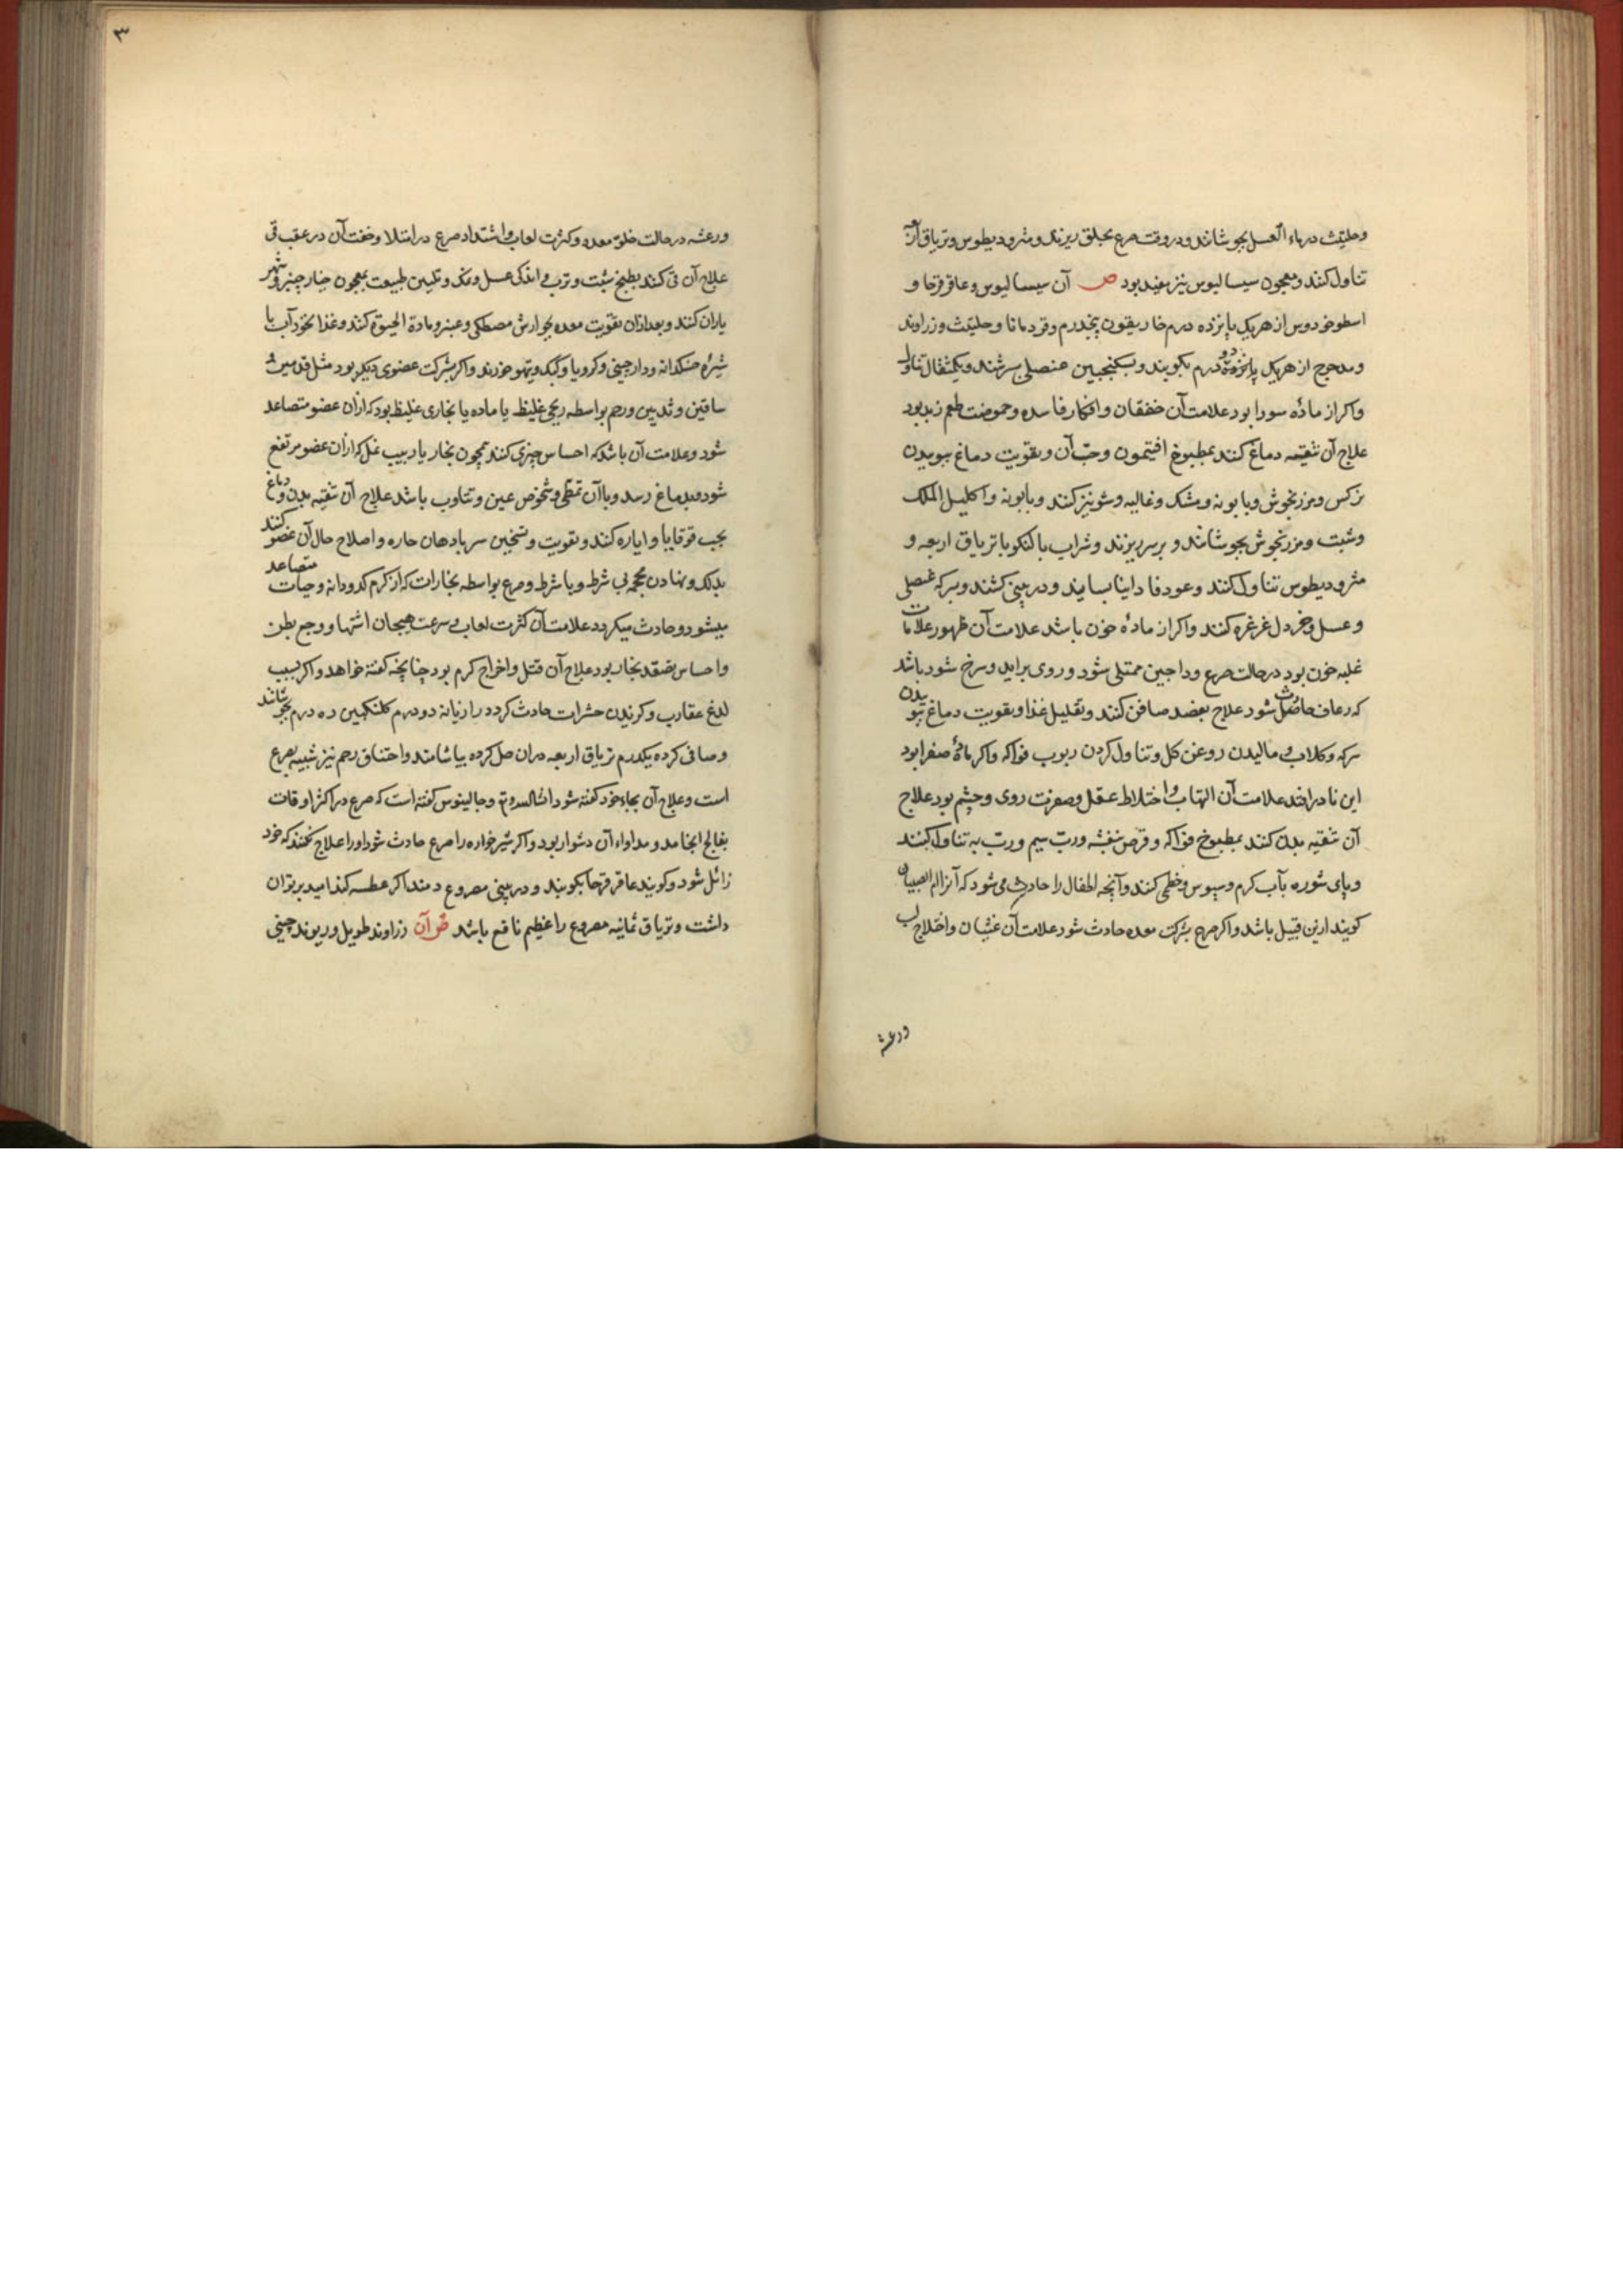 وحلیتث در ماء العسل بجوشانند و در وقت صرع بحلق ریزند و مثرودیطوس و تریاق
تناول کنند و معجون سیسالیوس نیز مفید بود ص آن سیسالیوس و عاقرقرحا و
اسطوخودوس از هریک پانزده درم غاریقون پنجدرم و قردمانا و حلیتث و زراوند
ومدحرج از هریک دو درم بکوبند و بسکنجبین عنصلی سرشند و یکمثقال تناول
واکر از مادۀ سودا بود علامت آن خفقان وافکار فاسده وحموضت طعم زبد بود
علاج آن تنقیه دماغ کنند بمطبوخ افتیمون وحب آن وتقویت دماغ ببوییدن
نرکس ومرزنجوش وبابونه ومشک وغالیه وشونیز کنند وبابونه واکلیل الملک
وشبت ومرزنجوش بجوشانند و برسر ریزند وشراب باکنکو با تریاق اربعه و
مثرودیطوس تناول کنند وعود فاوانیا بسایند ودر بینی کشند وبسرکه عنصلی
وعسل وخردل غرغره کنند واکر از مادۀ خون باشد علامت آن ظهور علامات
غلبه خون بود در حالت صرع وداجین ممتلی شود وروی براید وسرخ شود باشد
که رعاف حادث شود علاج بفصد صافن کنند وتقلیل غذا وتقویت دماغ ببوییدن
سرکه وکلاب ومالیدن روغن کل وتناول کردن ربوب فواکه واکر مادۀ صفرا بود
این نادر افتد علامت آن التهاب واختلاط عقل وصفرت روی وچشم بود علاج
آن تنقیه بدن کنند بمطبوخ فواکه وقرص بنفشه ورب سیب ورب به تناول کنند
وپای شوره بآب کرم وسبوس وخطمی کنند وآنچه اطفال را حادث می شود که آنرا ام الصبیان
کویند ازین قبیل باشد واکر صرع بشرکت معده حادث شود علامت آن غثیان واختلاج لب
ورعشه
۳
ورعشه در حالت خلو معده وکثرت لعاب واشتداد صرع در امتلا وخفت آن در عقب قی
علاج آن قی کنند بطبیخ شبت وترب واندکی عسل ونمک وتلیین طبیعت بمعجون خیارچنبر وشهر
یاران کنند وبعدازان تقویت معده بجوارش مصطکی وعنبر ومادة الحیوة کنند وغذا نخودآب با
شیرۀ خسکدانه ودارچینی وکرویا وکبک وتیهو خورند واکر بشرکت عضوی دیکر بود مثل قدمین و
ساقین وثدیین ورحم بواسطه ریحی غلیظ یا ماده یا بخاری غلیظ بود که ازان عضو متصاعد
شود وعلامت آن باشد که احساس چیزی کنند همچون بخار یا دبیب نمل که ازان عضو مرتفع
شود وبدماغ رسد وباآن تمطی وشخوص عین وتثاوب باشد علاج آن تنقیه بدن ودماغ
بحب قوقایا وایاره کنند وتقویت وتسخین سر بادهان حاره واصلاح حال آن عضو کنند
بدلک ونهادن محجمه بی شرط وبا شرط وصرع بواسطه بخارات که از کرم کدودانه وحیات متصاعد
میشود وحادث میکردد علامت آن کثرت لعاب وسرعت هیجان اشتها ووجع بطن
واحساس بصعود بخار بود علاج آن قتل واخراج کرم بود چنانچه کفته خواهد واکر بسبب
لدغ عقارب وکزیدن حشرات حادث کردد رازیانه دو درم کلنکبین ده درم بجوشانند
وصافی کرده یکدرم تریاق اربعه دران حل کرده بیاشامند واختناق رحم نیز شبیه بصرع
است وعلاج آن بجای خود کفته شود وجالینوس کفته است که صرع در اکثر اوقات
بفالج انجامد ومداواء آن دشوار بود واکر شیرخواره را صرع حادث شود اورا علاج نکنند که خود
زائل شود وکویند عاقرقرحا بکوبند ودر بینی مصروع دمند اکر عطسه کند امید برء توان
داشت وتریاق ثمانیه مصروع را عظیم نافع باشد ص آن زراوند طویل وریوند چینی